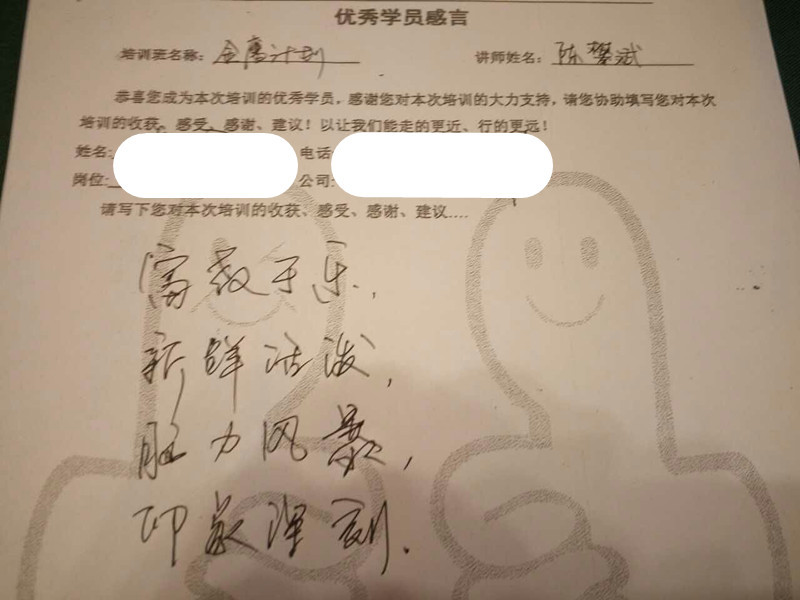 优秀学员感言
培训班名称：金鹰计划 讲师姓名：陈攀斌
恭喜您成为本次培训的优秀学员，感谢您对本次培训的大力支持，请您协助填写您对本次
培训的收获、感受、感谢、建议！以让我们能走的更近、行的更远！
姓名： 电话
岗位： 公司：
请写下您对本次培训的收获、感受、感谢、建议....
寓教于乐，
新鲜活泼，
脑力风暴，
印象深刻．